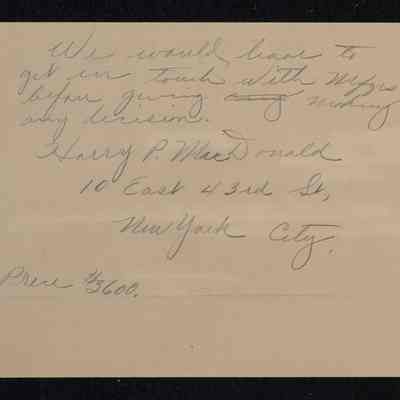 We would have to
get in touch with Mfgrs
before giving making
any decision.
Harry P. MacDonald
10 East 43rd St,
New York City.
Price $3600.